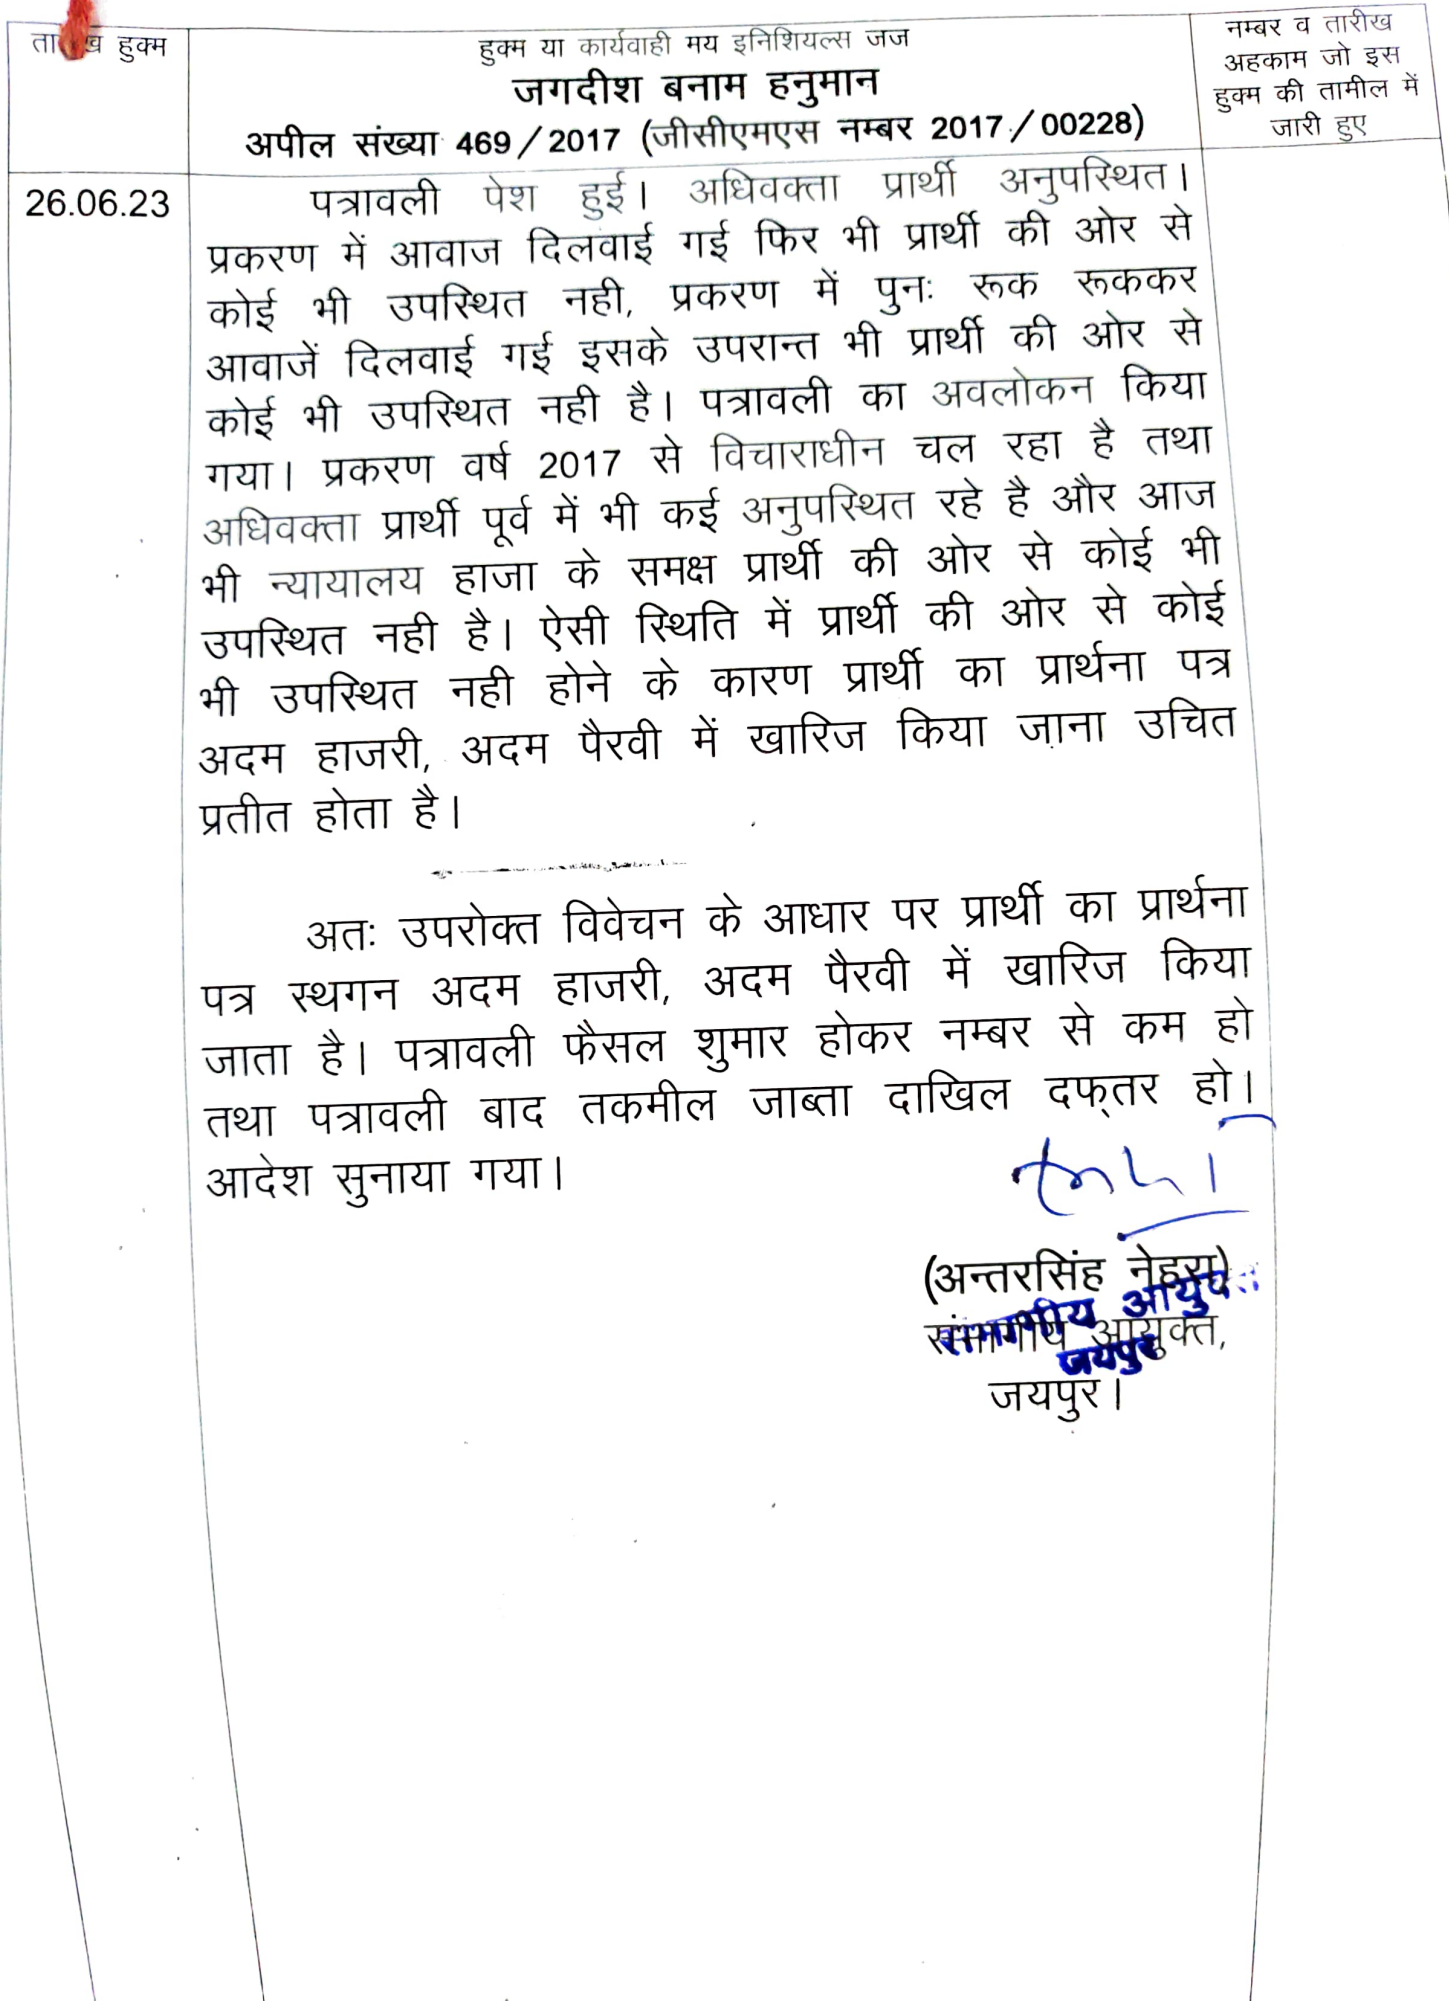 तारीख हुक्म
हुक्म या कार्यवाही मय इनिशियल्स जज
जगदीश बनाम हनुमान
अपील संख्या 469/2017 (जीसीएमएस नम्बर 2017/00228)
नम्बर व तारीख
अहकाम जो इस
हुक्म की तामील में
जारी हुए
26.06.23
पत्रावली पेश हुई। अधिवक्ता प्रार्थी अनुपस्थित।
प्रकरण में आवाज दिलवाई गई फिर भी प्रार्थी की ओर से
कोई भी उपस्थित नही, प्रकरण में पुनः रूक रूककर
आवाजें दिलवाई गई इसके उपरान्त भी प्रार्थी की ओर से
कोई भी उपस्थित नही है। पत्रावली का अवलोकन किया
गया। प्रकरण वर्ष 2017 से विचाराधीन चल रहा है तथा
अधिवक्ता प्रार्थी पूर्व में भी कई अनुपस्थित रहे है और आज
भी न्यायालय हाजा के समक्ष प्रार्थी की ओर से कोई भी
उपस्थित नही है। ऐसी स्थिति में प्रार्थी की ओर से कोई
भी उपस्थित नही होने के कारण प्रार्थी का प्रार्थना पत्र
अदम हाजरी, अदम पैरवी में खारिज किया जाना उचित
प्रतीत होता है।
अतः उपरोक्त विवेचन के आधार पर प्रार्थी का प्रार्थना
पत्र स्थगन अदम हाजरी, अदम पैरवी में खारिज किया
जाता है। पत्रावली फैसल शुमार होकर नम्बर से कम हो
तथा पत्रावली बाद तकमील जाब्ता दाखिल दफ्तर हो।
आदेश सुनाया गया।
(अन्तरसिंह नेहरा)
संभागीय आयुक्त
संभागीय आयुक्त,
जयपुर
जयपुर।